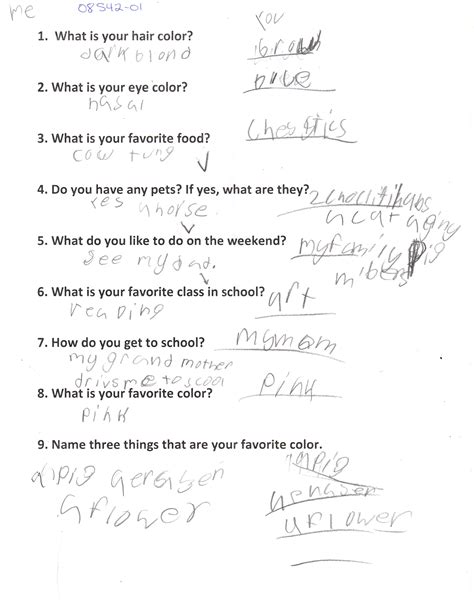 me 08542-01 You
1. What is your hair color?
dark blond brown
2. What is your eye color?
hasal blue
3. What is your favorite food?
cow tung Chesstics
4. Do you have any pets? If yes, what are they?
yes a horse 2
a cat
5. What do you like to do on the weekend?
See my dad. my family
6. What is your favorite class in school?
reading art
7. How do you get to school?
my grand mother my mom
drivs me to scool
8. What is your favorite color?
pink pink
9. Name three things that are your favorite color.
a pig
a flower a flower